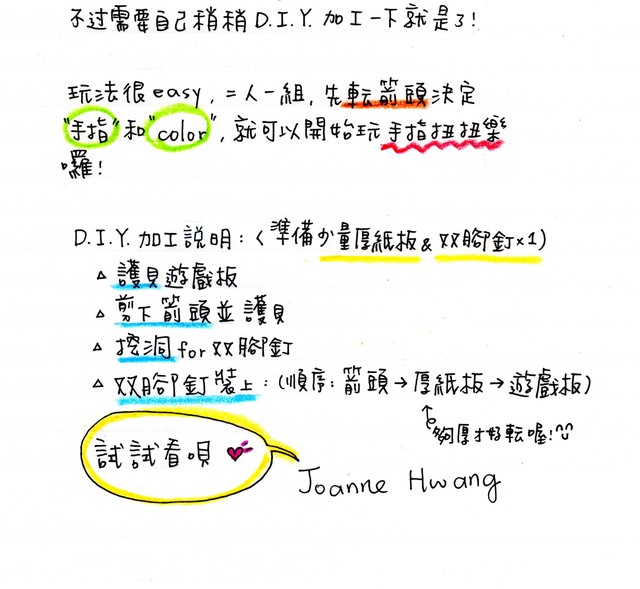 不过需要自己稍稍 D.I.Y. 加工一下就是了!
玩法很easy, 二人一組, 先転箭頭決定
"手指"和"color", 就可以開始玩手指扭扭樂
囉!
D.I.Y. 加工說明:(準備少量厚紙板&双腳釘×1)
△ 護貝遊戲板
△ 剪下箭頭並護貝
△ 挖洞for双腳釘
△ 双腳釘裝上:(順序:箭頭→厚紙板→遊戲板)
夠厚才好転喔!
試試看唄
Joanne Hwang